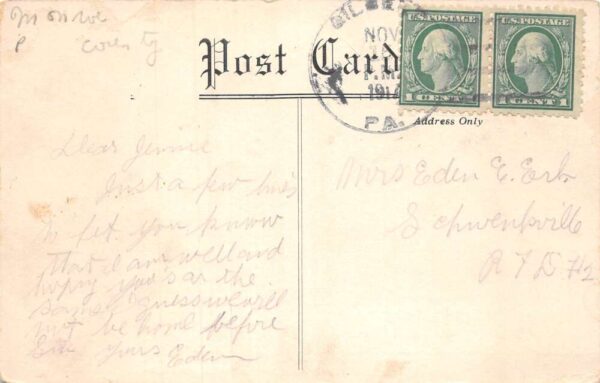 Monroe
P county
Post Card
NOV
P.M.
1917
PA.
U.S. POSTAGE
1 CENT 1
U.S. POSTAGE
1 CENT 1
Address Only
Dear Jennie
Just a few lines
to let you know
that I am well and
hoping you's ar the
same guess we will
not be home before
Yours Eden
Mrs Eden E. Erb
Schwenksville
R F D #2